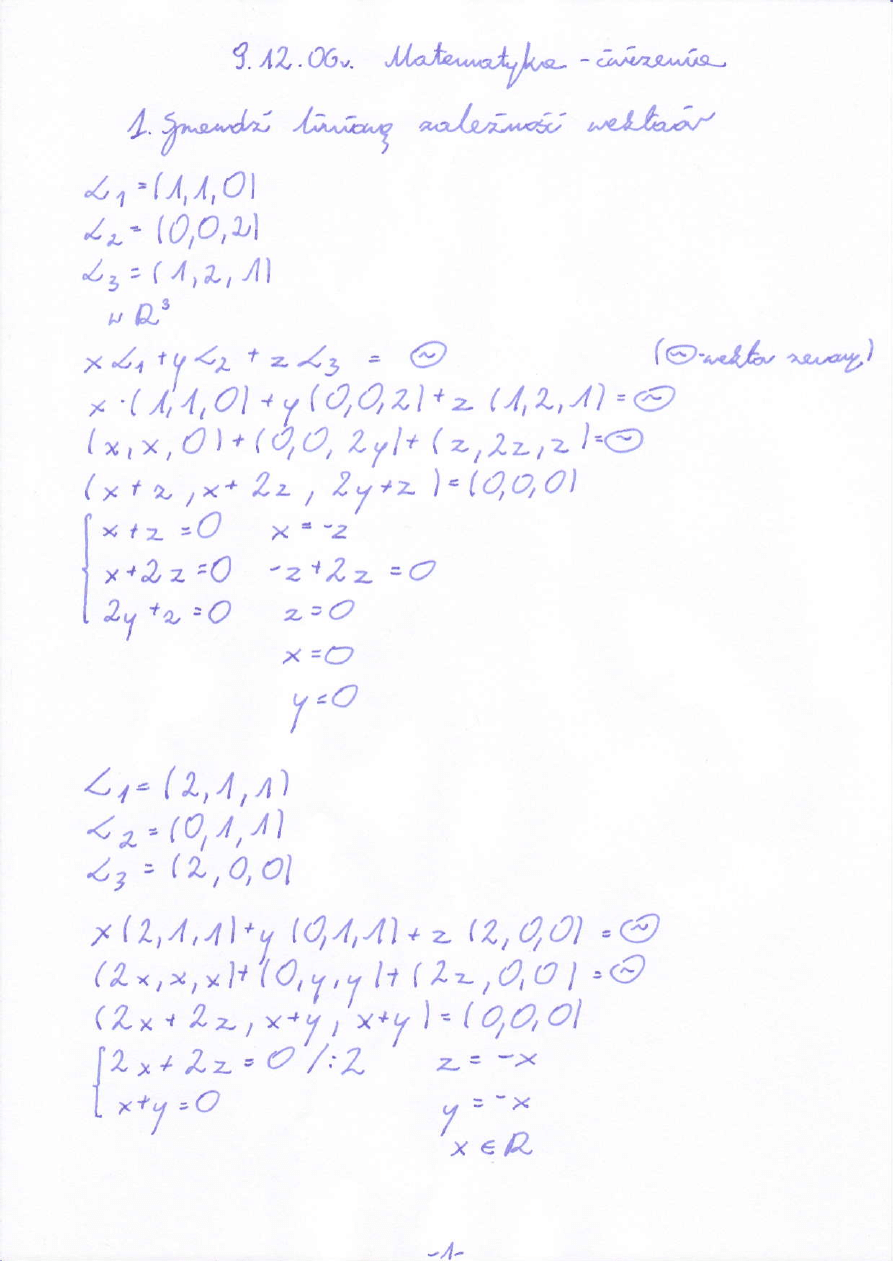 9.12.06r. Matematyka - ćwiczenia
1. Sprawdź liniową zależność wektorów
α₁ = (1,1,0)
α₂ = (0,0,2)
α₃ = (1,2,1)
w R³
xα₁ + yα₂ + zα₃ = Θ (Θ - wektor zerowy)
x·(1,1,0) + y(0,0,2) + z(1,2,1) = Θ
(x,x,0) + (0,0,2y) + (z,2z,z) = Θ
(x+z, x+2z, 2y+z) = (0,0,0)
x+z=0 x=-z
x+2z=0 -z+2z=0
2y+z=0 z=0
x=0
y=0
α₁ = (2,1,1)
α₂ = (0,1,1)
α₃ = (2,0,0)
x(2,1,1) + y(0,1,1) + z(2,0,0) = Θ
(2x,x,x) + (0,y,y) + (2z,0,0) = Θ
(2x+2z, x+y, x+y) = (0,0,0)
2x+2z=0 /:2 z=-x
x+y=0 y=-x
x ∈ R
-1-